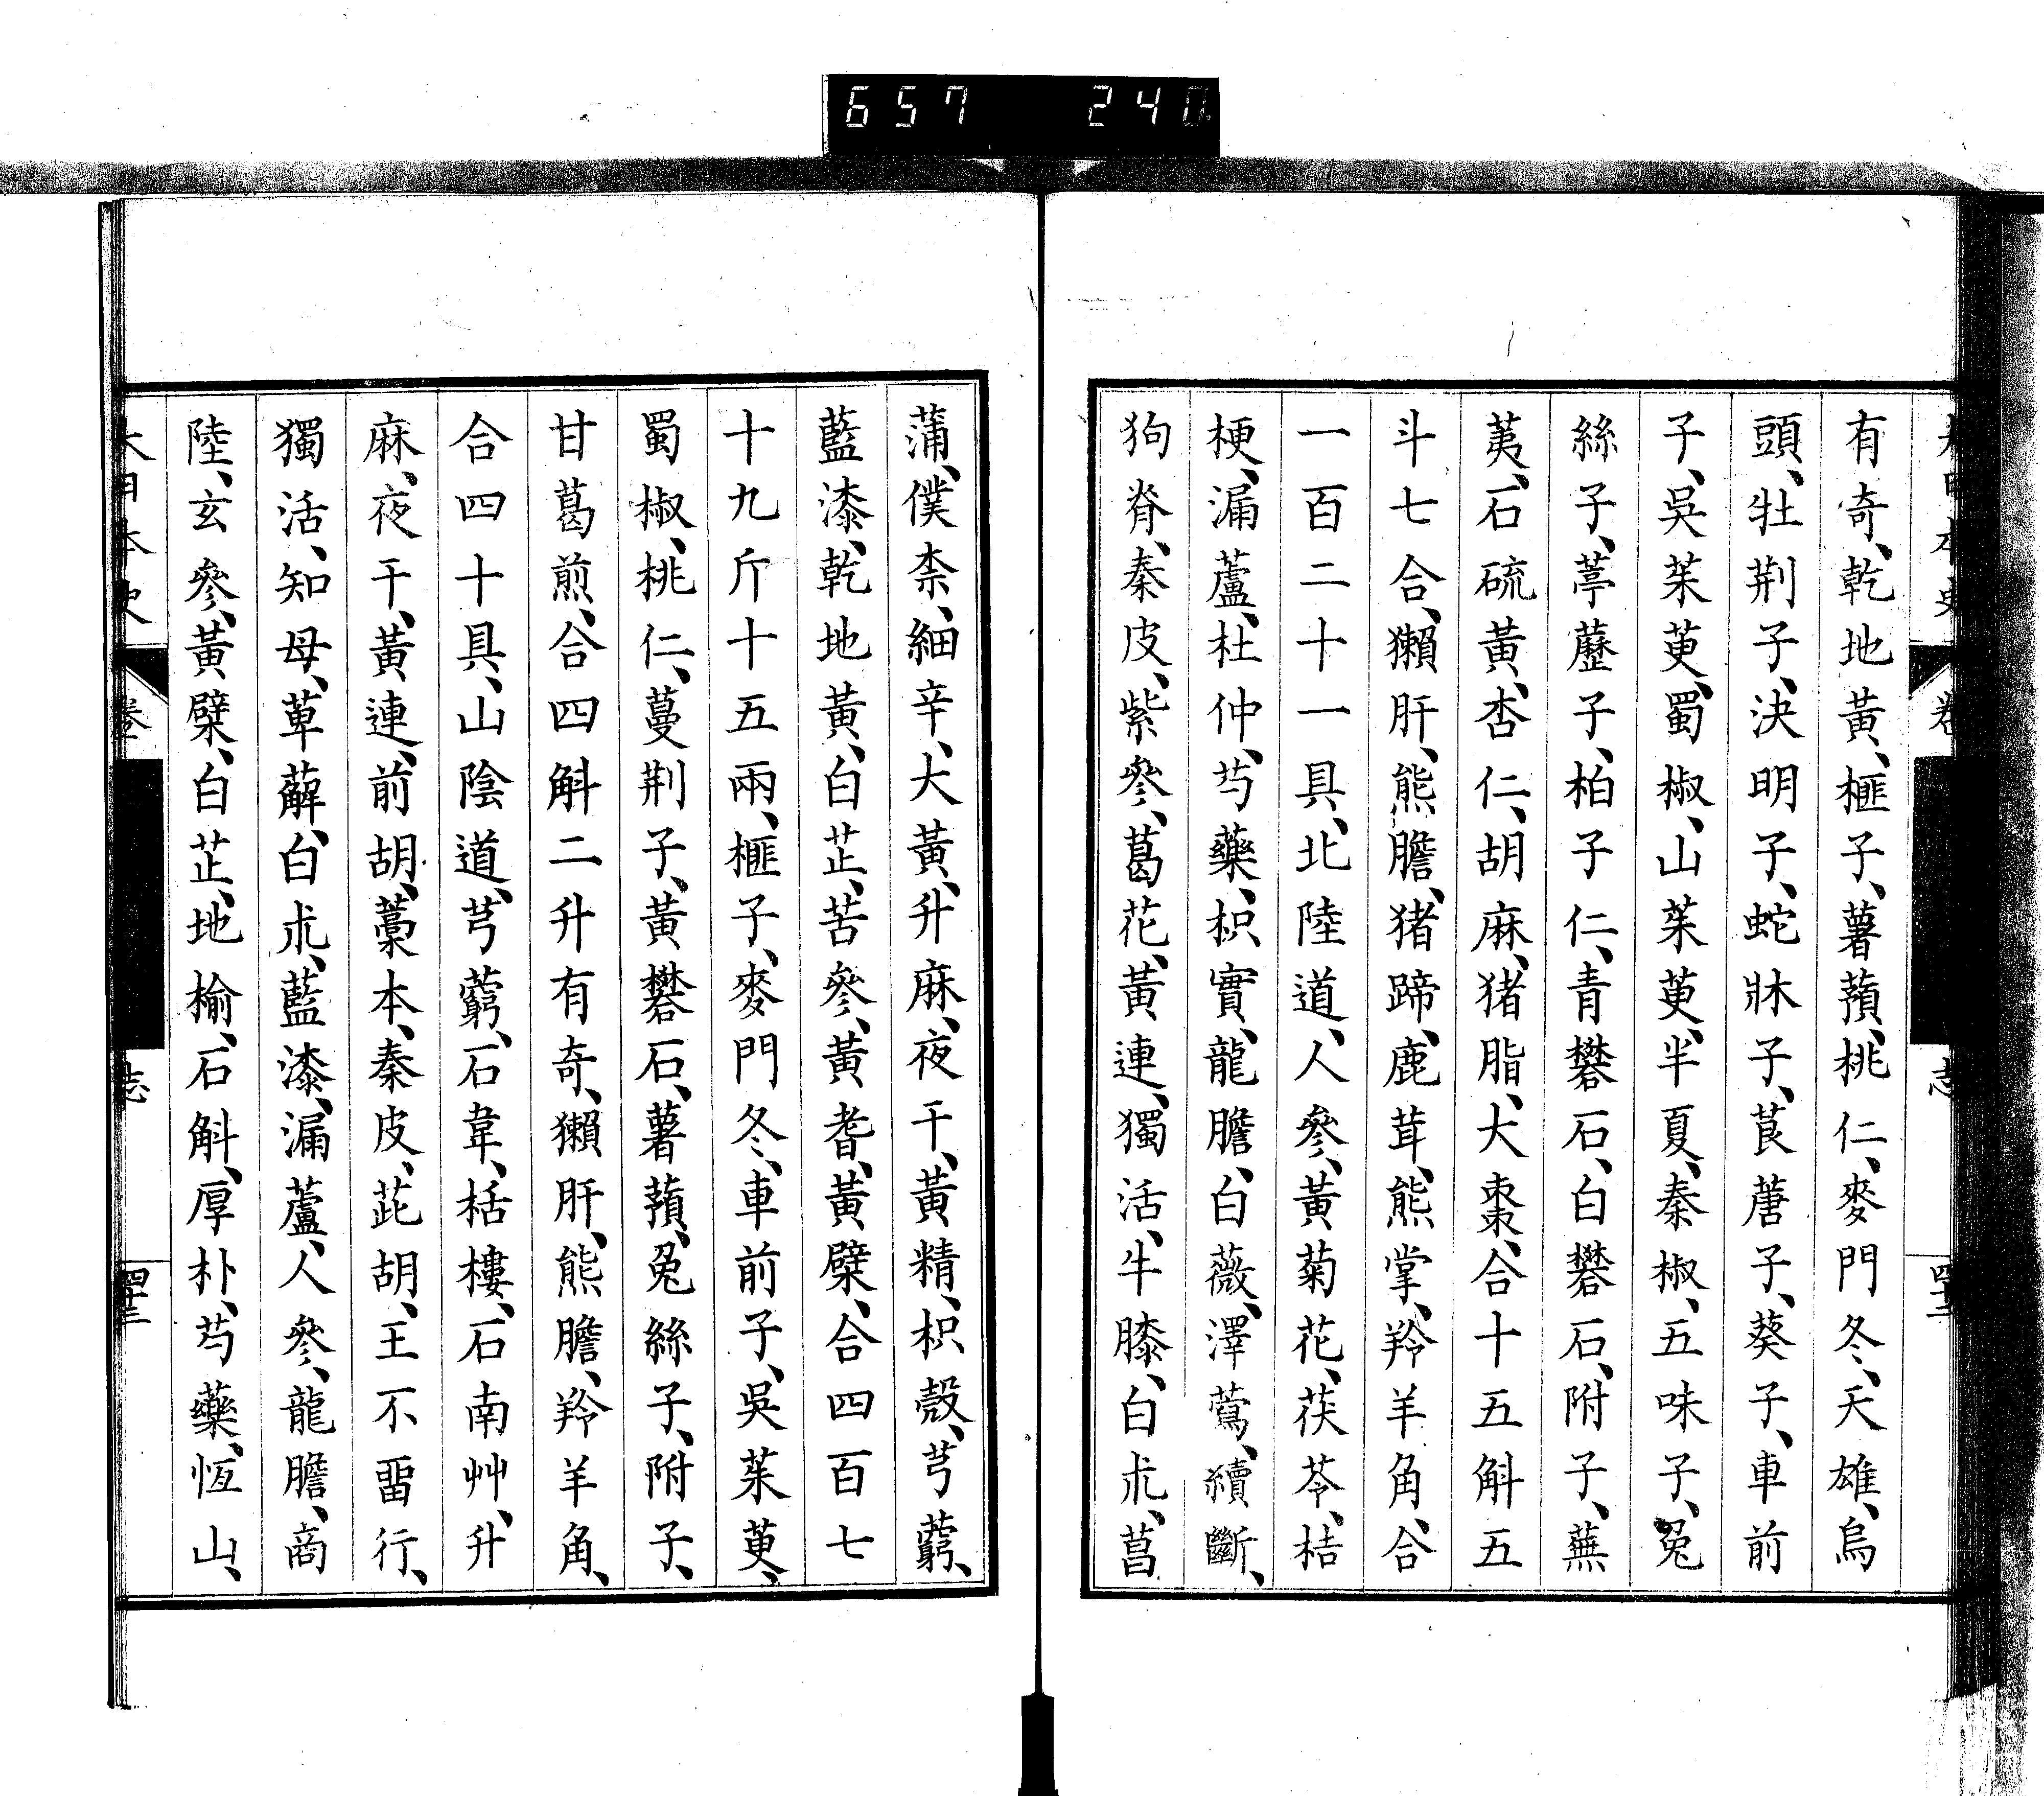 657 240
有奇、乾地黃、榧子、薯蕷、桃仁、麥門冬、天雄、烏
頭、牡荆子、決明子、蛇牀子、莨蓎子、葵子、車前
子、吳茱萸、蜀椒、山茱萸、半夏、秦椒、五味子、兔
絲子、葶藶子、柏子仁、青礬石、白礬石、附子、蕪
荑、石硫黃、杏仁、胡麻、猪脂、大棗、合十五斛五
斗七合、獺肝、熊膽、猪蹄、鹿茸、熊掌、羚羊角、合
一百二十一具、北陸道、人參、黃菊花、茯苓、桔
梗、漏蘆、杜仲、芍藥、枳實、龍膽、白薇、澤蔿、續斷、
狗脊、秦皮、紫參、葛花、黃連、獨活、牛膝、白朮、菖
蒲、僕柰、細辛、大黃、升麻、夜干、黃精、枳殼、芎藭、
藍漆、乾地黃、白芷、苦參、黃耆、黃檗、合四百七
十九斤十五兩、榧子、麥門冬、車前子、吳茱萸、
蜀椒、桃仁、蔓荆子、黃礬石、薯蕷、兔絲子、附子、
甘葛煎、合四斛二升有奇、獺肝、熊膽、羚羊角、
合四十具、山陰道、芎藭、石韋、栝樓、石南艸、升
麻、夜干、黃連、前胡、藁本、秦皮、茈胡、王不畱行、
獨活、知母、萆薢、白朮、藍漆、漏蘆、人參、龍膽、商
陸、玄參、黃檗、白芷、地榆、石斛、厚朴、芍藥、恆山、
大日本史 卷 志